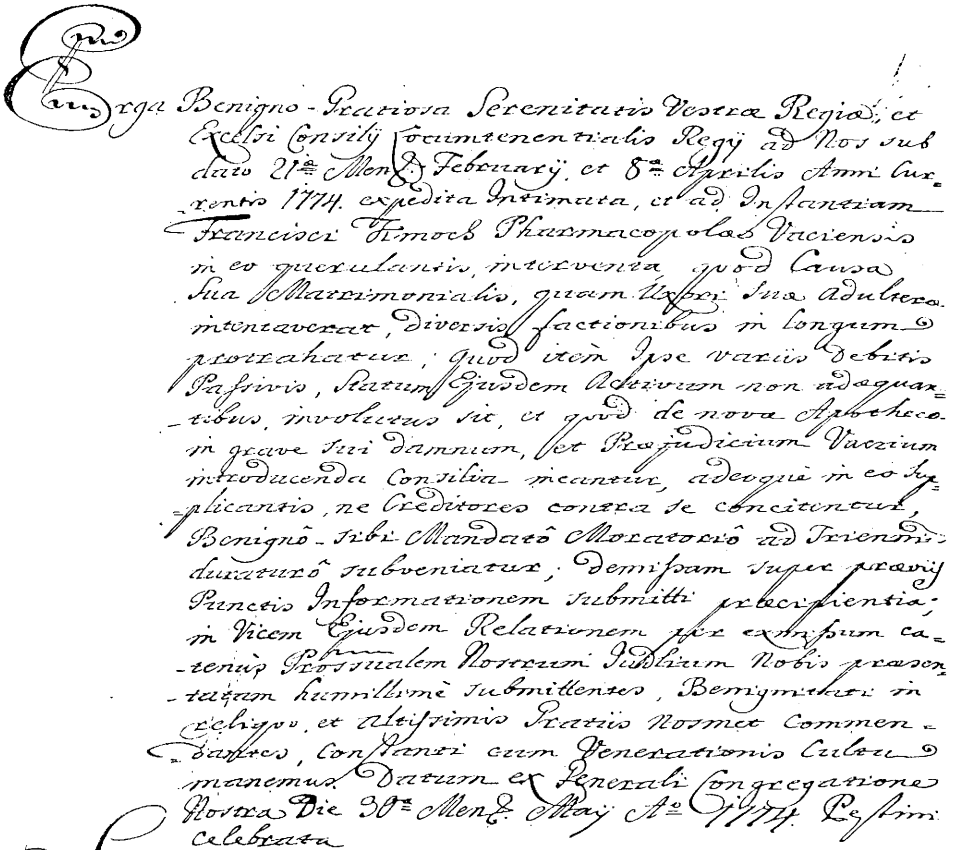 Erga Benigno-Gratiosa Serenitatis Vestræ Regiæ, et
Excelsi Consilij Locumtenentialis Regij ad Nos sub
dato 21ª Mens. Februarij, et 8ª Aprilis Anni Cur=
=rentis 1774. expedita Intimata, et ad Instantiam
Francisci Pharmacopolæ Vaciensis
in eo querulantis, interventa, quod Causa
Sua Matrimonialis, quam Uxori suæ adulteræ
intentaverat, diversis factionibus in longum
protrahatur; quod item Ipse variis Debitis
Passivis, Statum Ejusdem Activum non adæquan=
=tibus, involutus sit, et quod de nova Apotheca
in grave sui damnum, et Præjudicium Vacium
introducenda Consilia ineantur, adeoque in eo Sup=
=plicantis, ne Creditores contra se concitentur,
Benignô-sibi Mandatô Moratoriô ad Triennium
duraturô subveniatur; demissam super præviis
Punctis Informationem submitti præcipientia;
in Vicem Ejusdem Relationem per exmissum ea=
=tenus Nostrum Judlium Nobis præsen=
=tatam humillimè submittentes, Benignitati in
reliquo, et altissimis Gratiis Nosmet commen=
=dantes, constanti cum Venerationis Cultu
manemus. Datum ex Generali Congregatione
Nostra Die 30ª Mens. Maij Aº 1774. Pestini
celebrata